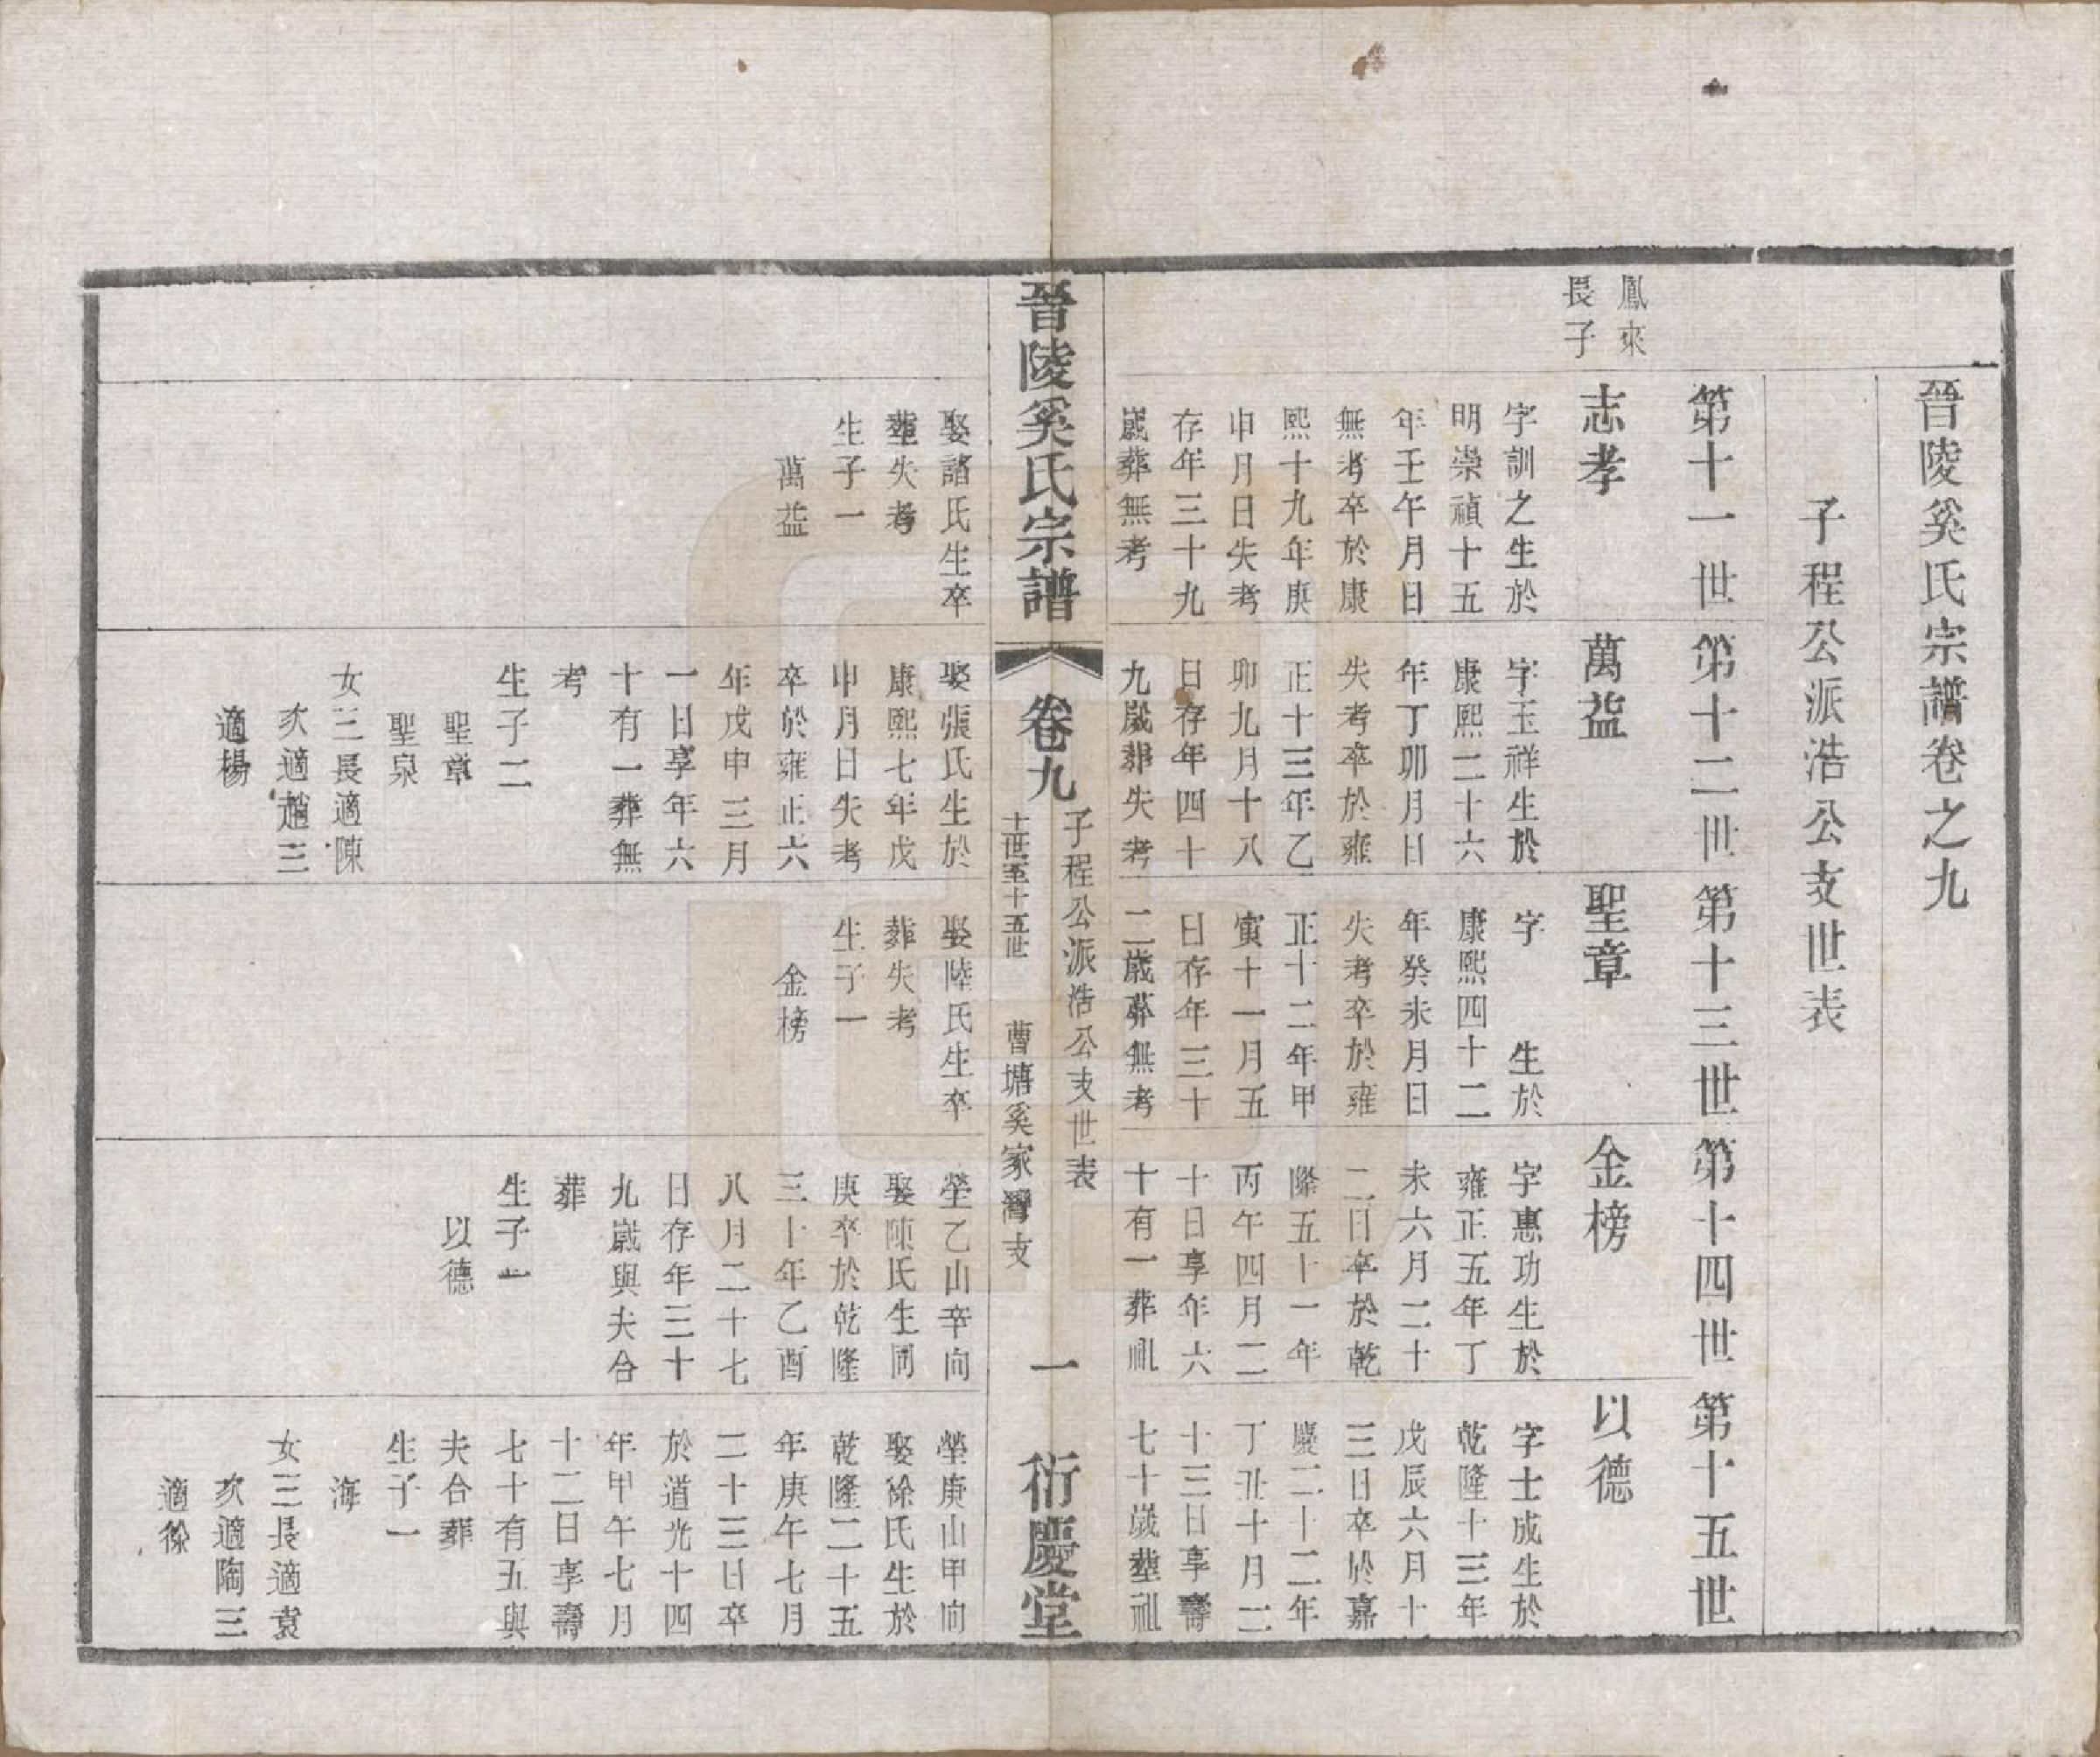 晉陵奚氏宗譜卷之九
子程公派浩公支世表
第十一世
第十二世
第十三世
第十四世
第十五世
鳳來
長子
志孝
字訓之生於
明崇禎十五
年壬午月日
無考卒於康
熙十九年庚
申月日失考
存年三十九
歲葬無考
娶諸氏生卒
塟失考
生子一
萬益
萬益
字玉祥生於
康熙二十六
年丁卯月日
失考卒於雍
正十三年乙
卯九月十八
日存年四十
九歲葬失考
娶張氏生於
康熙七年戊
申月日失考
卒於雍正六
年戊申三月
一日享年六
十有一葬無
考
生子二
聖章
聖泉
女三長適陳
次適趙三
適楊
聖章
字　生於
康熙四十二
年癸未月日
失考卒於雍
正十二年甲
寅十一月五
日存年三十
二歲葬無考
娶陸氏生卒
葬失考
生子一
金榜
金榜
字惠功生於
雍正五年丁
未六月二十
二日卒於乾
隆五十一年
丙午四月二
十日享年六
十有一葬祖
塋乙山辛向
娶陳氏生同
庚卒於乾隆
三十年乙酉
八月二十七
日存年三十
九歲與夫合
葬
生子一
以德
以德
字士成生於
乾隆十三年
戊辰六月十
三日卒於嘉
慶二十二年
丁丑十月二
十三日享壽
七十歲塟祖
塋庚山甲向
娶徐氏生於
乾隆二十五
年庚午七月
二十三日卒
於道光十四
年甲午七月
十二日享壽
七十有五與
夫合葬
生子一
海
女三長適袁
次適陶三
適徐
晉陵奚氏宗譜
卷九
子程公派浩公支世表
十一世至十五世
曹塘奚家灣支
一
衍慶堂